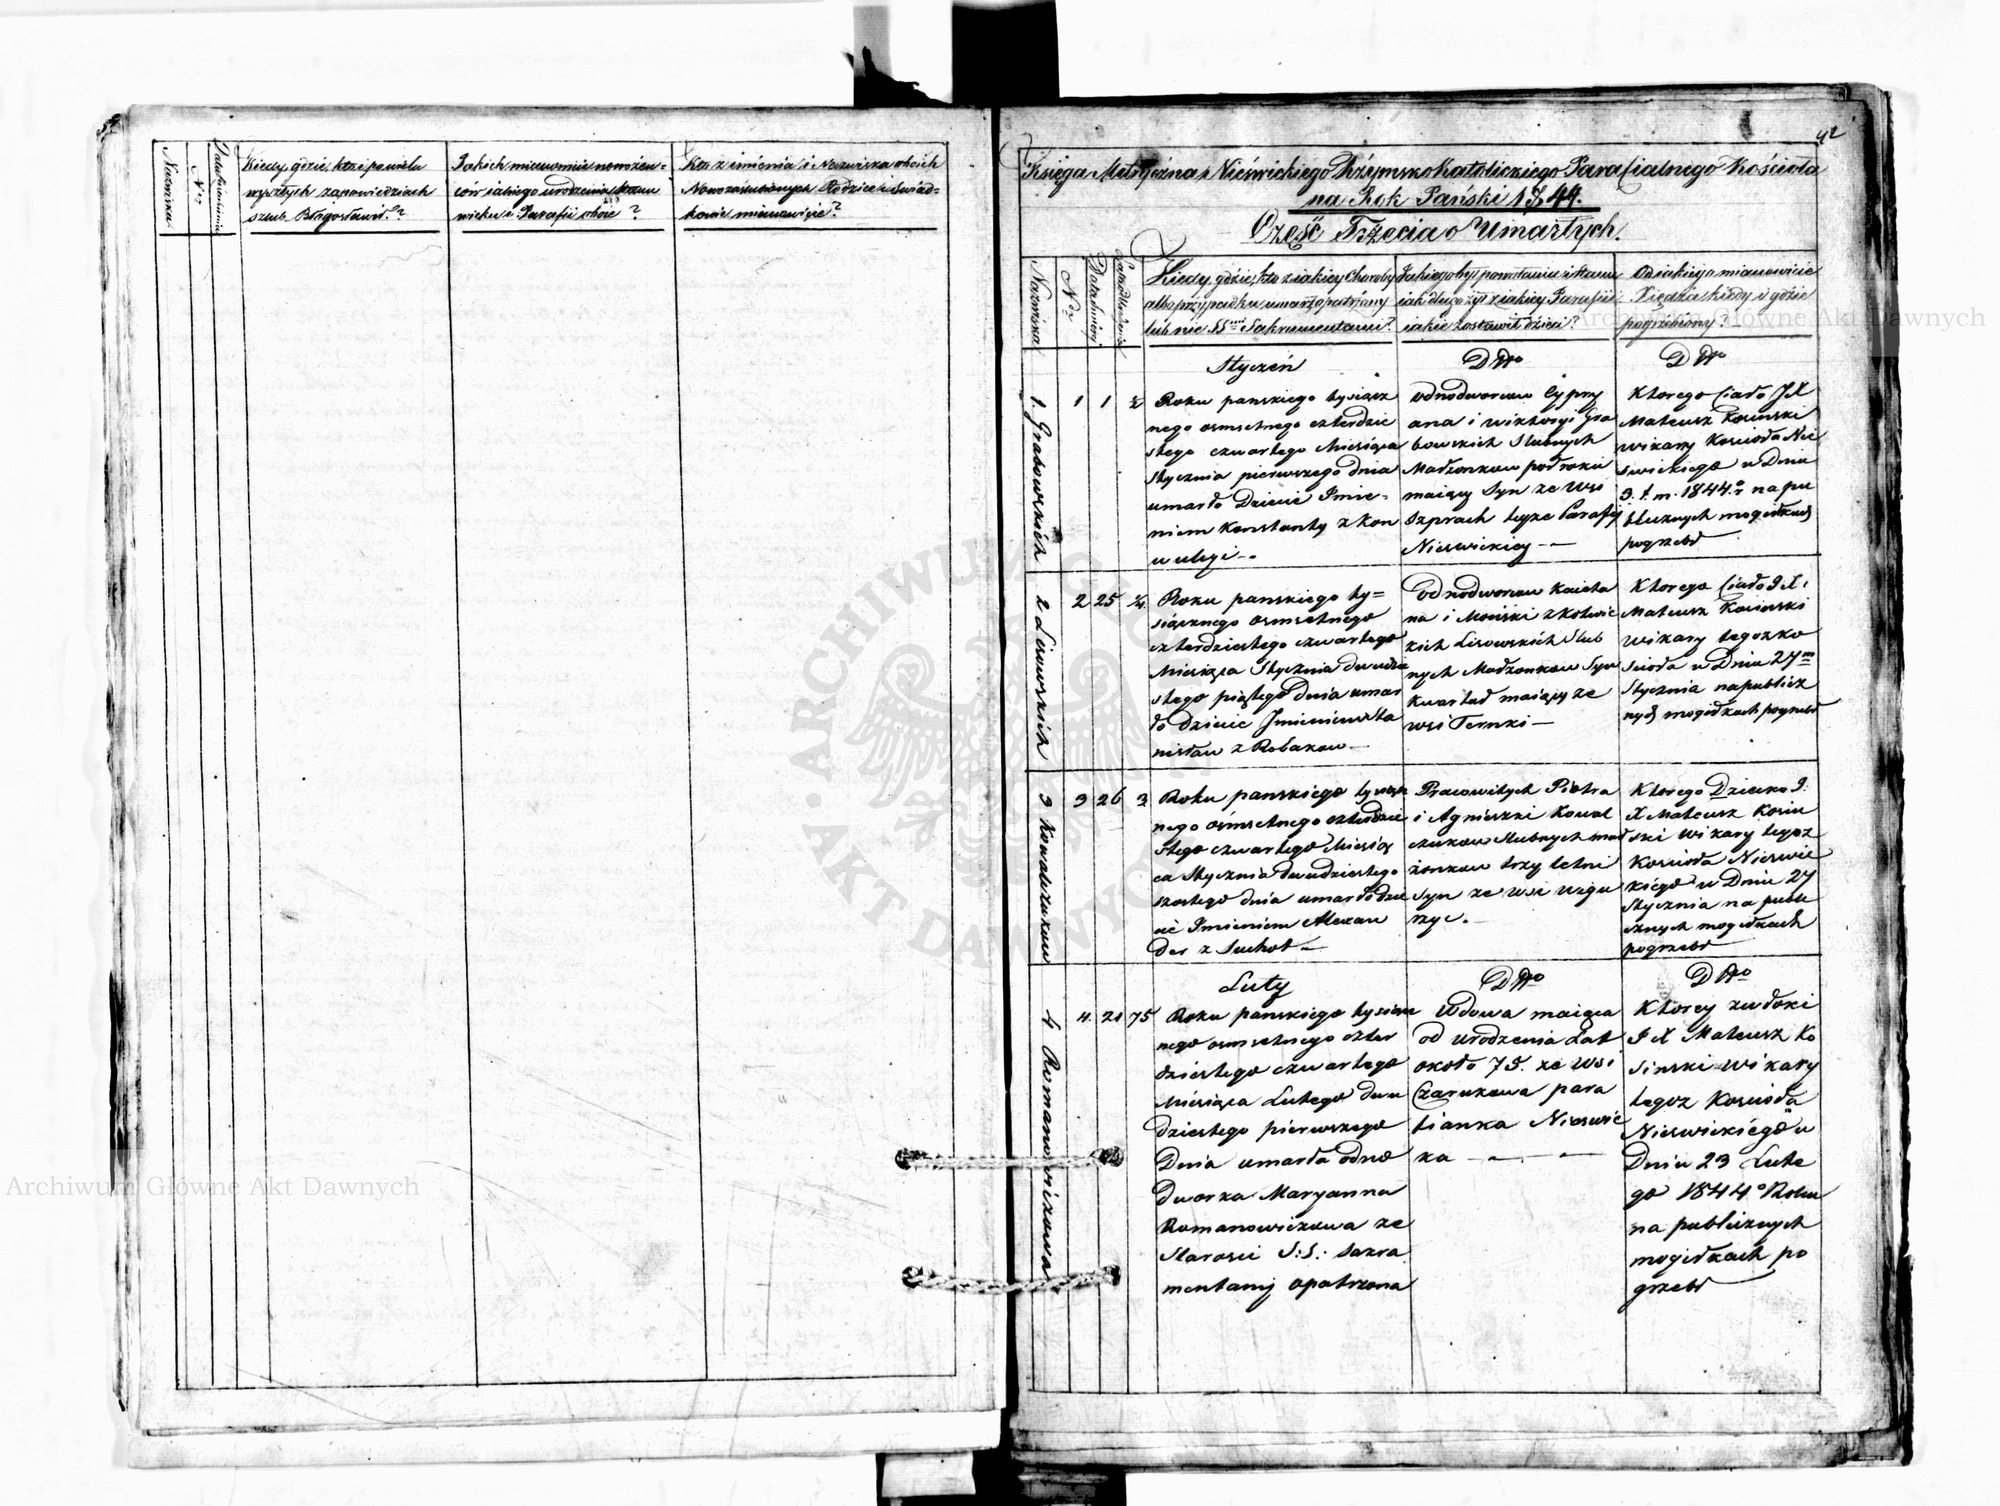 Nazwiska
Nrz
Data błogosł.
Kiedy, gdzie, kto i po wielu
wyszłych zapowiedziach
szlub Błogosławił?
Jakich mianowicie nowożeń=
ców iakiego urodzenia stanu
wieku i Parafii oboie?
Kto z imienia i Nazwiska oboich
Nowozaślubionych Rodzice i Świad=
kowie mianowicie?
42
Księga Metryczna Nieświckiego Rzymsko Katolickiego Parafialnego Kościoła
na Rok Pański 1844.
Część Trzecia o Umarłych.
Nazwiska
Nrz
Kiedy, gdzie, kto z iakiey Choroby
albo przypadku umarł opatrzony
lub nie SSmi Sakramentami?
Jakiego był powołania i Stanu
iak długo żył z iakiey Parafii
iakie zostawił dzieci?
Od iakiego mianowicie
Xiędza kiedy i gdzie
pogrzebiony?
Styczeń
Dtto
Dtto
1. Grabowskich
1
1
½
Roku panskiego tysiącz
nego osmsetnego czterdzie
stego czwartego Miesiąca
Stycznia pierwszego dnia
umarło Dziecie Imie=
niem Konstanty z Kon
wulsyi -.
odnodworcow Cypry
ana i Wiktoryi Gra
bowskich Slubnych
Małzonkow poł roku
maiący Syn ze Wsi
Szprach teyze Parafij
Nieswickiey —
Ktorego Ciało J X
Mateusz Kosinski
wikary Koscioła Nie
swickiego w Dniu
3. t. m. 1844 r. na pu
blicznych mogiłkach
pogrzebł
2 Lisowskich
2
25
¼
Roku panskiego ty=
siącznego osmsetnego
czterdziestego czwartego
Miesiąca Stycznia dwudzie
stego piątego Dnia umar
ło dziecie Imieniem Sta
nisław z Robakow —
Odnodworcow Kaieta
na i z Kotwic
kich Lisowskich Slub
nych Małzonkow Syn
kwartał maiący ze
wsi Ternki —
Ktorego Ciało J X
Mateusz Kosinski
wikary tegoz Ko
scioła w Dniu 27m
Stycznia na publicz
nych mogiłkach pogrzebł
3 Kowalczukow
3
26
3
Roku panskiego tysiącz
nego osmsetnego czterdzie
stego czwartego Miesią
ca Stycznia dwudziestego
szostego dnia umarło dzie
cie Imieniem Alexan
der z Suchot —
Pracowitych Piotra
i Agnieszki Kowal
czukow slubnych mał
żonkow trzy letni
Syn ze wsi Uzgu
rzyc.
Ktorego Dziecko J.
X Mateusz Kosin
ski Wikary tegoz
Koscioła Nieswic
kiego w Dniu 27
Stycznia na publi
cznych mogiłkach
pogrzebł
Luty
Dtto
Dtto
4 Romanowiczowa
4.
21
75
Roku panskiego tysiącz
nego osmsetnego czter
dziestego czwartego
Miesiąca Lutego dwu
dziestego pierwszego
Dnia umarła odno
dworka Maryanna
Romanowiczowa ze
Starosci S: S: Sakra
mentamj opatrzona
Wdowa maiąca
od urodzenia Lat
około 75. ze Wsi
Czarukowa para
fianka Nieswic
ka —
Ktorey zwłoki
J X Mateusz Ko
sinski wikary
tegoz Koscioła
Nieswickiego w
Dniu 23 Lute
go 1844o Roku
na publicznych
mogiłkach po
grzebł
ARCHIWUM GŁÓWNE AKT DAWNYCH
Archiwum Główne Akt Dawnych
Archiwum Główne Akt Dawnych